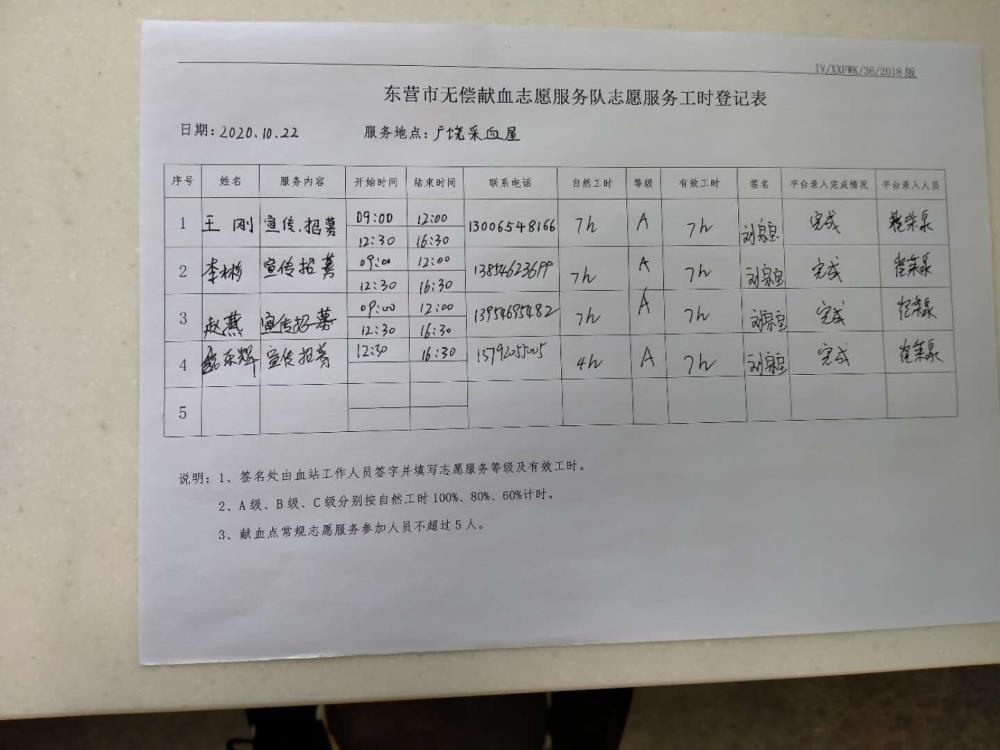 IV/XXFWK/36/2018版
东营市无偿献血志愿服务队志愿服务工时登记表
日期:2020.10.22 服务地点:广饶采血屋
序号 姓名 服务内容 开始时间 结束时间 联系电话 自然工时 等级 有效工时 签名 平台录入完成情况 平台录入人员
1 王刚 宣传.招募 09:00 12:00 13006548166 7h A 7h 刘泉 完成
12:30 16:30
2 李彬 宣传招募 09:00 12:00 7h A 7h 刘泉 完成
12:30 16:30
3 赵燕 宣传招募 09:00 12:00 13954695482 7h A 7h 刘泉 完成
12:30 16:30
4 宣传招募 12:30 16:30 4h A 7h 刘泉 完成
5
说明:1、签名处由血站工作人员签字并填写志愿服务等级及有效工时。
2、A级、B级、C级分别按自然工时100%、80%、60%计时。
3、献血点常规志愿服务参加人员不超过5人。